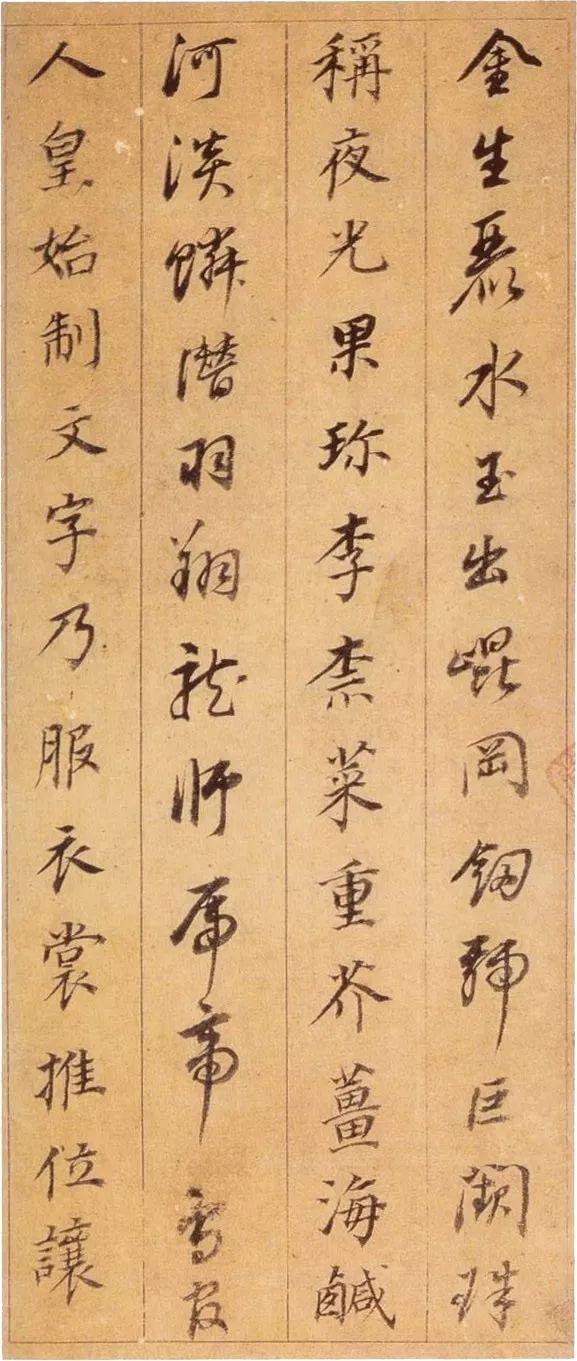 金生麗水玉出崐岡釼號巨闕珠
稱夜光果珎李柰菜重芥薑海鹹
河淡鱗潛羽翔龍師帝鳥官
人皇始制文字乃服衣裳推位讓